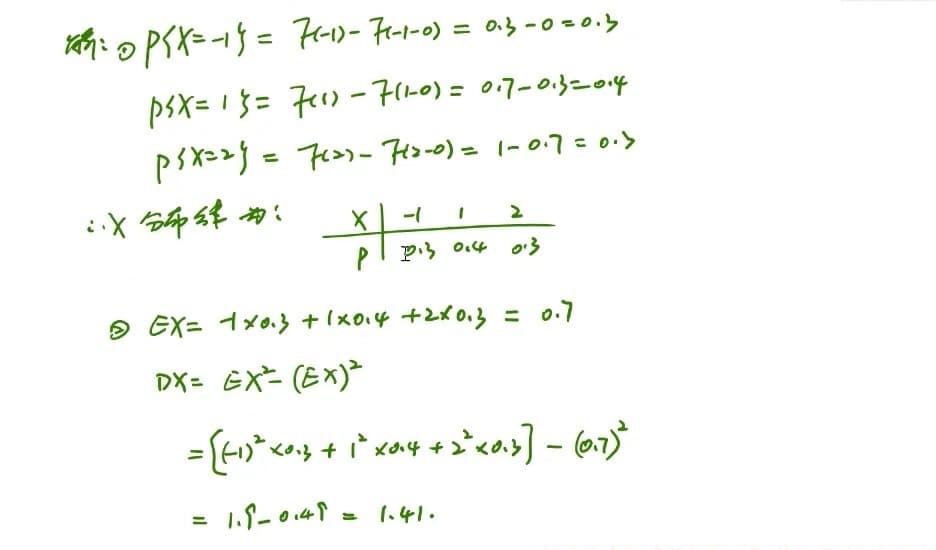 解: ① P{X=-1} = F(-1) - F(-1-0) = 0.3 - 0 = 0.3
P{X=1} = F(1) - F(1-0) = 0.7 - 0.3 = 0.4
P{X=2} = F(2) - F(2-0) = 1 - 0.7 = 0.3
∴ X 分布律为:
X | -1 1 2
P | 0.3 0.4 0.3
② EX = -1×0.3 + 1×0.4 + 2×0.3 = 0.7
DX = EX² - (EX)²
= [(-1)²×0.3 + 1²×0.4 + 2²×0.3] - (0.7)²
= 1.9 - 0.49 = 1.41.